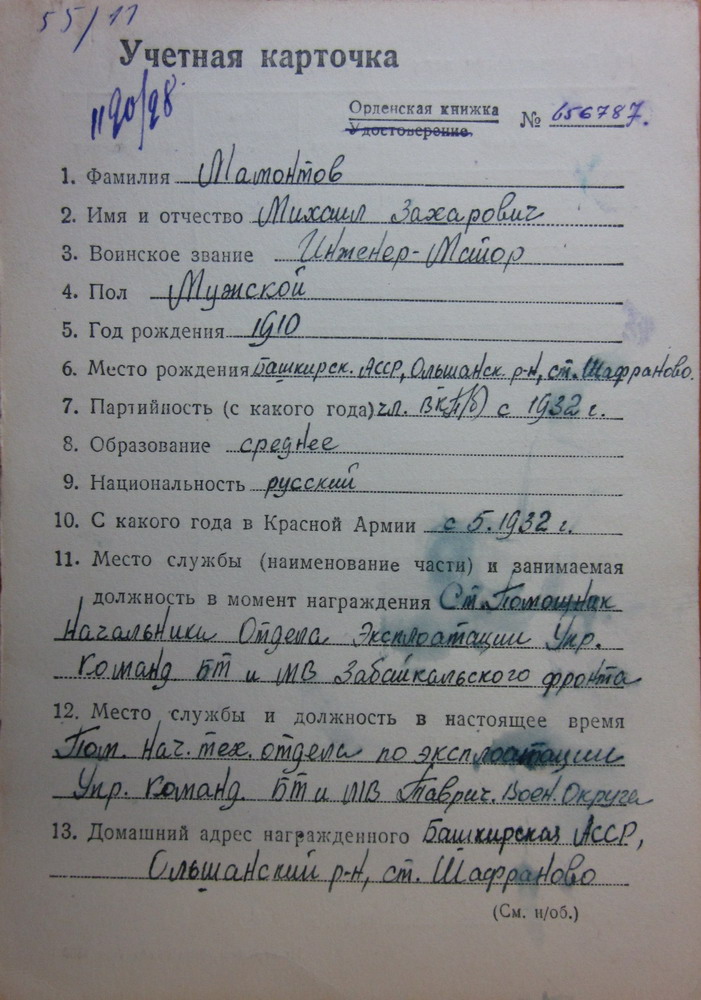 55/11
Учетная карточка
1190/98
Орденская книжка
Удостоверение № 656787.
1. Фамилия Мамонтов
2. Имя и отчество Михаил Захарович
3. Воинское звание Инженер-Майор
4. Пол Мужской
5. Год рождения 1910
6. Место рождения Башкирск. АССР, Ольшанск. р-н, ст. Шафраново.
7. Партийность (с какого года) чл. ВКП(б) с 1932 г.
8. Образование среднее
9. Национальность русский
10. С какого года в Красной Армии с 5.1932 г.
11. Место службы (наименование части) и занимаемая
должность в момент награждения Ст. Помощник
Начальника Отдела Эксплоатации Упр.
Команд. БТ и МВ Забайкальского фронта
12. Место службы и должность в настоящее время
Пом. Нач. тех. отдела по эксплоатации
Упр. Команд. БТ и МВ Таврич. Воен. Округа
13. Домашний адрес награжденного Башкирская АССР,
Ольшанский р-н, ст. Шафраново
(См. н/об.)